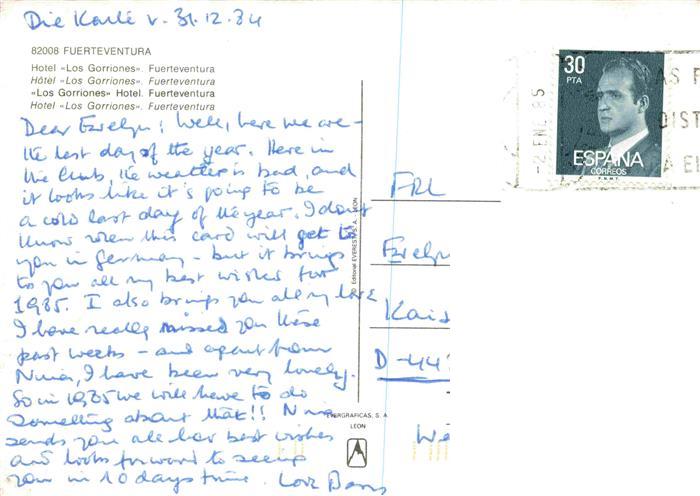 Die Karte v. 31.12.84
82008 FUERTEVENTURA
Hotel «Los Gorriones». Fuerteventura
Hôtel «Los Gorriones». Fuerteventura
«Los Gorriones» Hotel. Fuerteventura
Hotel «Los Gorriones». Fuerteventura
Dear Evelyn; Well, here we are -
the last day of the year. Here in
the Club, the weather is bad, and
it looks like it's going to be
a cold last day of the year. I don't
know when this card will get to
you in Germany - but it brings
to you all my best wishes for
1985. I also brings you all my love
I have really missed you these
past weeks - and apart from
Nina, I have been very lonely.
So in 1985 we will have to do
something about that!! Nina
sends you all her best wishes
and looks forward to seeing
you in 10 days time. Love
© Editorial EVEREST, S. A. LEON
EVERGRAFICAS, S. A.
LEON
30
PTA
ESPAÑA
CORREOS
F.N.M.T.
-2 ENE 85
AS F
DIST
A EL
FRL
Evelyn
Kais
D-44
We